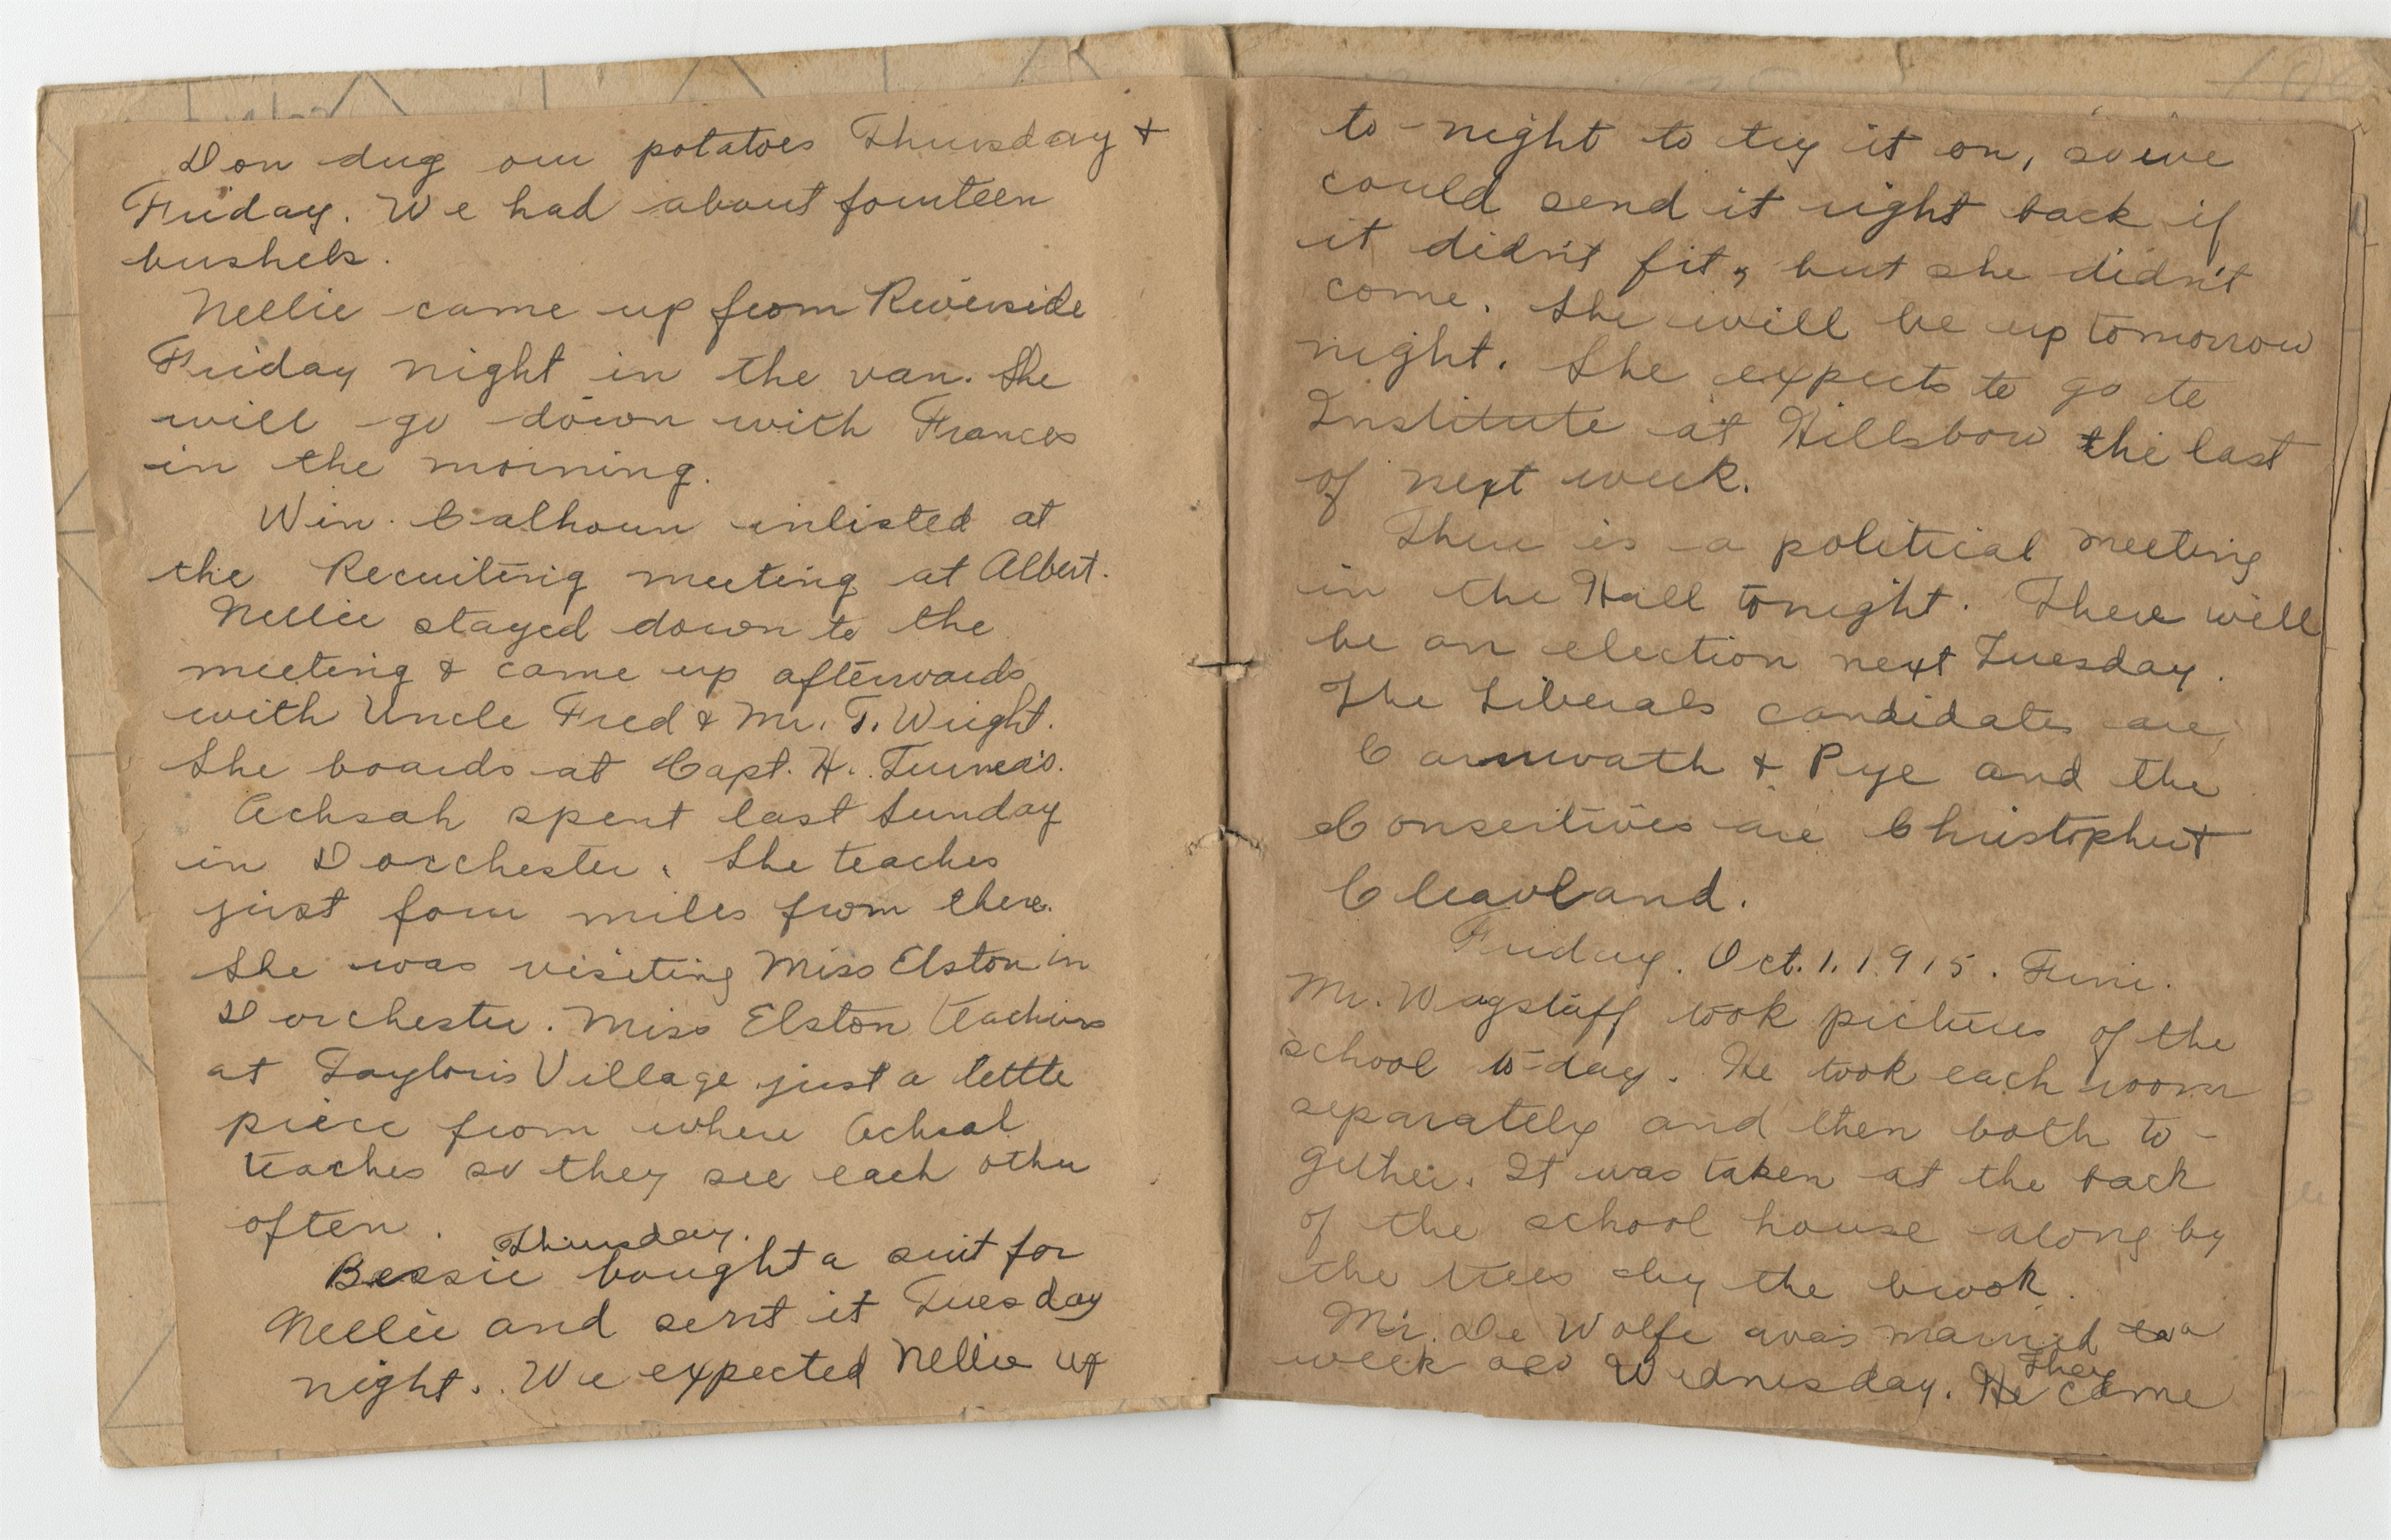 Don dug our potatoes Thursday &
Friday. We had about fourteen
bushels.
Nellie came up from Riverside
Friday night in the van. She
will go down with Frances
in the morning.
Win. Calhoun inlisted at
the Recruiting meeting at Albert.
Nellie stayed down to the
meeting & came up afterwards
with Uncle Fred & Mr. T. Wright.
She boards at Capt. H. Turner's.
Achsah spent last Sunday
in Dorchester. She teaches
just four miles from there.
She was visiting Miss Elston in
Dorchester. Miss Elston teachers
at Taylor's Village just a little
piece from where Achsah
teaches so they see each other
often.
Thursday.
Bessie bought a suit for
Nellie and sent it Tuesday
night. We expected Nellie up
to-night to try it on, so we
could send it right back if
it didn't fit, but she didn't
come. She will be up tomorrow
night. She expects to go to
Institute at Hillsboro the last
of next week.
There is a political meeting
in the Hall tonight. There will
be an election next Tuesday.
The Liberals candidates are
Carnwath & Pye and the
Consertives are Christopher &
Cleavland.
Friday. Oct. 1. 1915. Fine.
Mr. Wagstaff took pictures of the
school to-day. He took each room
separately and then both to-
gether. It was taken at the back
of the school house along by
the trees by the brook.
Mr. De Wolfe was married a
week ago Wednesday. He came
They